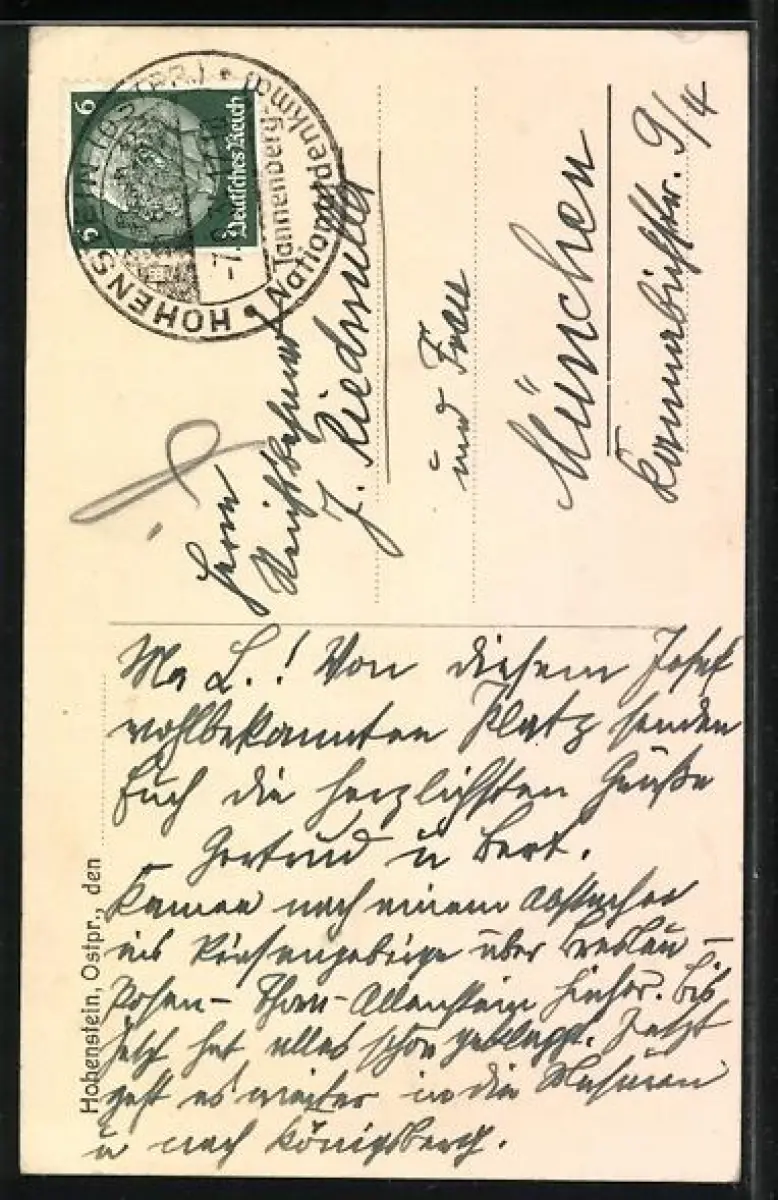 6
Deutsches Reich
HOHENSTEIN (OSTPR.)
Tannenberg-
Nationaldenkmal
Herrn
J. Riedmüller
und Frau
München
9/4
Hohenstein, Ostpr., den
M. L.! Von diesem Josef
wohlbekannten Platz senden
Euch die herzlichsten Grüße
Gertrud u Bert.
Kamen nach einem Abstecher
ins Riesengebirge über Breslau –
Posen – Thorn – Allenstein hieher. Bis
jetzt hat alles schön geklappt. Jetzt
geht es weiter in die Masuren
u nach Königsberg.